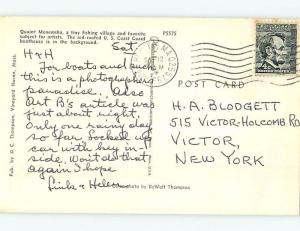 Quaint Menemsha, a tiny fishing village and favorite
subject for artists. The red-roofed U. S. Coast Guard
boathouse is in the background.
P5575
Sat.
H & H
For boats and such
this is a photographers
paradise. Also
Art B's article was
just about right.
Only one rainy day
so far. Locked my
car with key in-
side. Won't do that
again I hope
& Helen
photo by DeWolf Thompson
Pub. by D. C. Thompson, Vineyard Haven, Mass.
POST CARD
H. A. BLODGETT
515 VICTOR-HOLCOMB RD
VICTOR,
NEW YORK